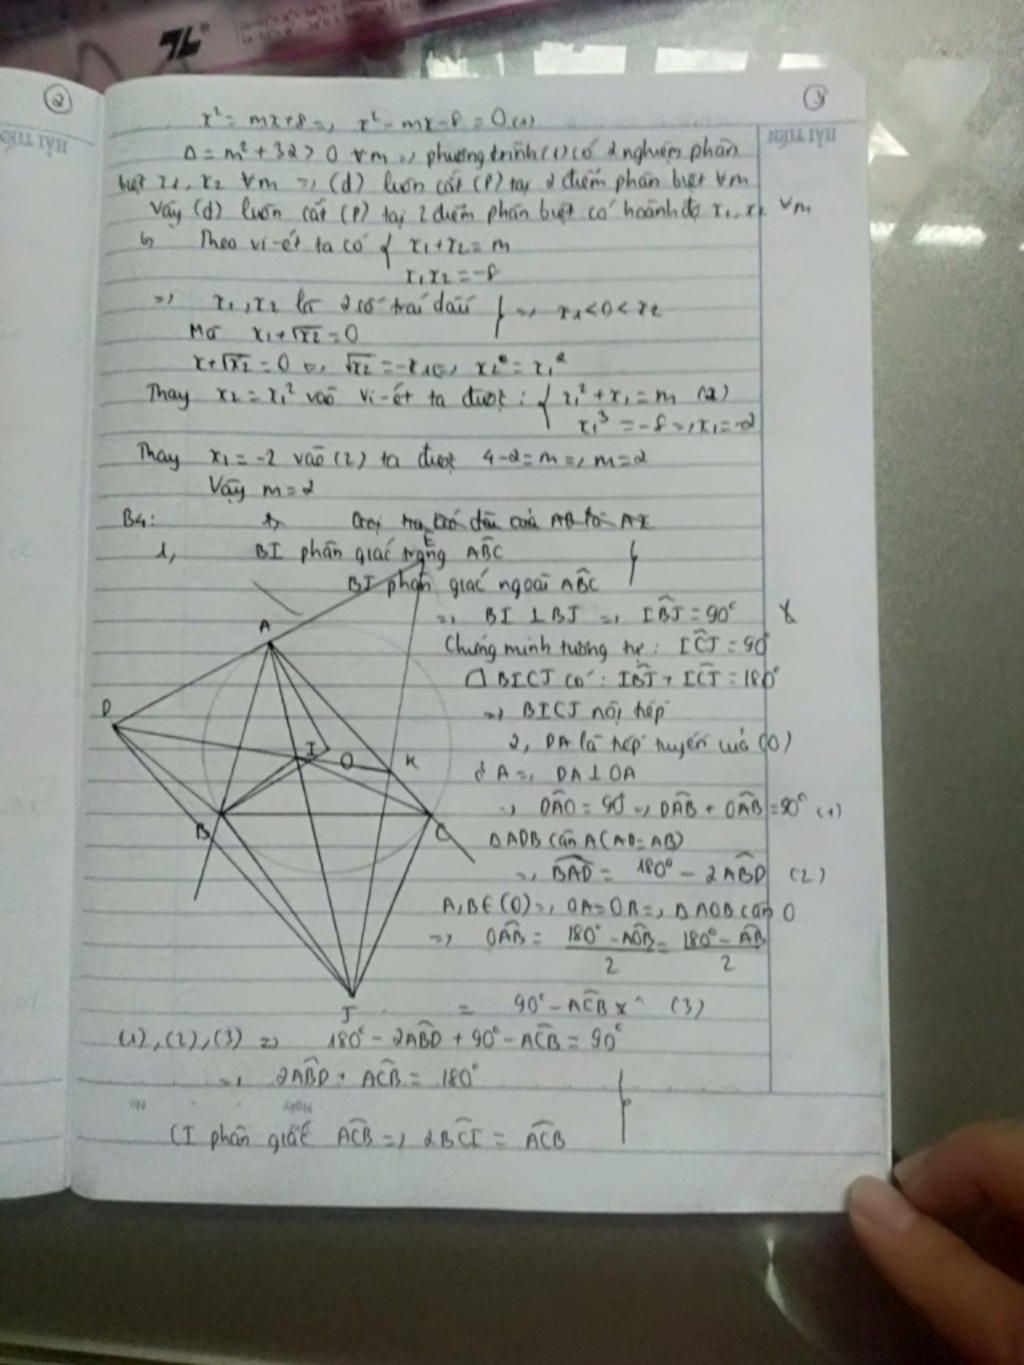 2
3
HẢI TIẾN
HẢI TIẾN
x² = mx+8 => x² - mx - 8 = 0 (1)
Δ = m² + 32 > 0 ∀m => phương trình (1) có 2 nghiệm phân
biệt x1, x2 ∀m => (d) luôn cắt (P) tại 2 điểm phân biệt ∀m
Vậy (d) luôn cắt (P) tại 2 điểm phân biệt có hoành độ x1, x2 ∀m
b, Theo vi-ét ta có { x1+x2 = m
x1x2 = -8
=> x1, x2 là 2 số trái dấu } => x1<0<x2
Mà x1+√x2 = 0
x+√x2 = 0 <=> √x2 = -x1 <=> x2 = x1²
Thay x2 = x1² vào vi-ét ta được : { x1² + x1 = m (2)
x1³ = -8 => x1 = -2
Thay x1 = -2 vào (2) ta được 4-2 = m => m = 2
Vậy m = 2
B4: của AB là Ax
1, BI phân giác trong ABC
BJ phân giác ngoài ABC
=> BI ⊥ BJ => IBJ = 90°
Chứng minh tương tự : ICJ = 90°
□ BICJ có : IBJ + ICJ = 180°
=> BICJ nội tiếp
2, DA là tiếp tuyến của (O)
ở A => DA ⊥ OA
=> DAO = 90° => DAB + OAB = 90° (1)
ΔADB cân A (AD = AB)
=> BAD = 180° - 2ABD (2)
A, B ∈ (O) => OA = OB => ΔAOB cân O
=> OAB = 180° - AOB / 2 = 180° - AB / 2
= 90° - ACB (3)
E
A
D
I
O
K
B
C
J
(1), (2), (3) => 180° - 2ABD + 90° - ACB = 90°
=> 2ABD + ACB = 180°
No
Ngày
CI phân giác ACB => 2BCI = ACB